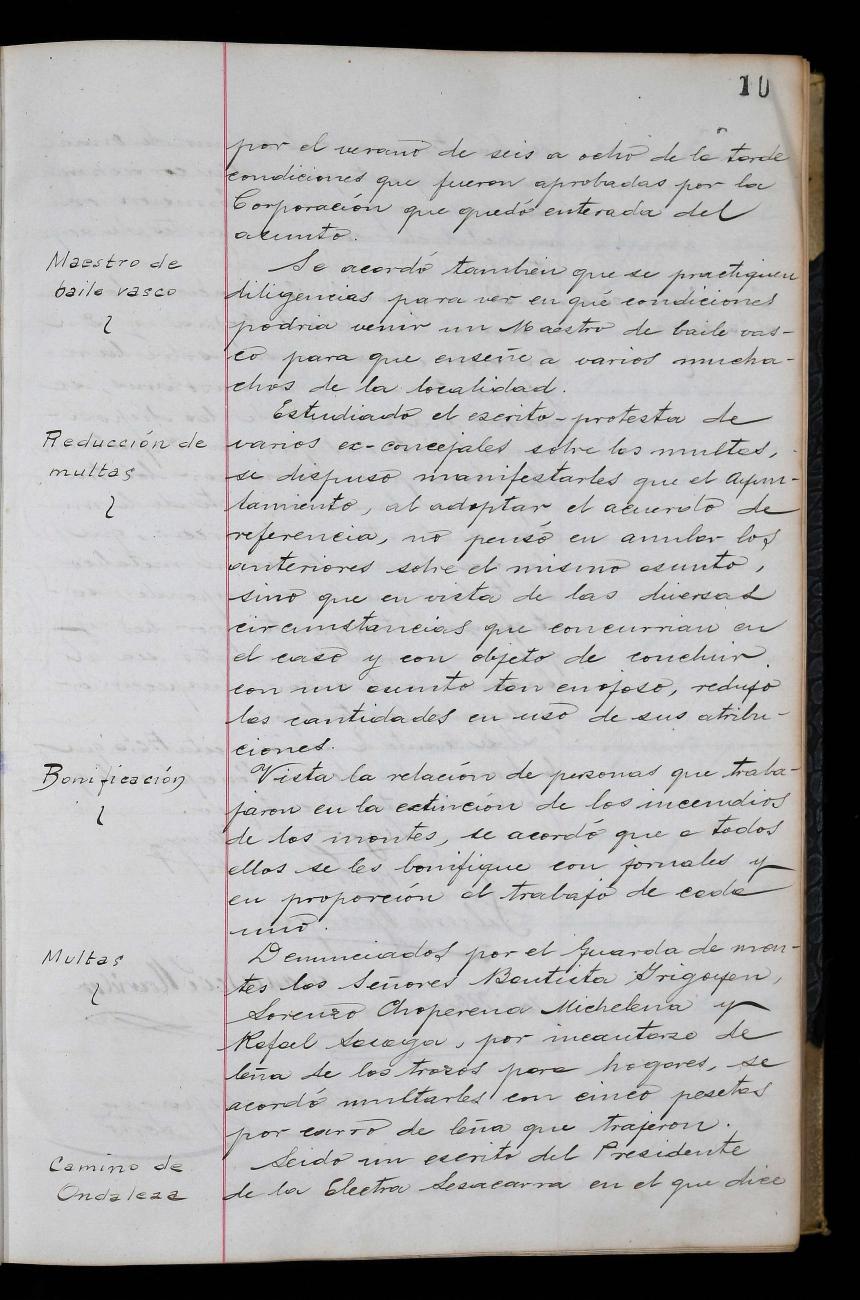 10
por el verano de seis a ocho de la tarde
condiciones que fueron aprobadas por la
Corporación que quedó enterada del
asunto.
Maestro de
baile vasco
Se acordó también que se practiquen
diligencias para ver en qué condiciones
podria venir un Maestro de baile vas-
co para que enseñe a varios mucha-
chos de la localidad.
Reducción de
multas
Estudiado el escrito-protesta de
varios ex-concejales sobre las multas,
se dispuso manifestarles que el Ayun-
tamiento, al adoptar el acuerdo de
referencia, no pensó en anular los
anteriores sobre el mismo asunto,
sino que en vista de las diversas
circunstancias que concurrian en
el caso y con objeto de concluir
con un asunto tan enojoso, redujo
las cantidades en uso de sus atribu-
ciones.
Bonificación
Vista la relación de personas que traba-
jaron en la extinción de los incendios
de los montes, se acordó que a todos
ellos se les bonifique con jornales y
en proporción al trabajo de cada
uno.
Multas
Denunciados por el Guarda de mon-
tes los Señores Bautista Yrigoyen,
Lorenzo Choperena Michelena y
Rafael , por incautarse de
leña de los trozos para hogares, se
acordó multarles con cinco pesetas
por carro de leña que trajeron.
Camino de
Ondalasa
Leido un escrito del Presidente
de la Electra Lesacarra en el que dice